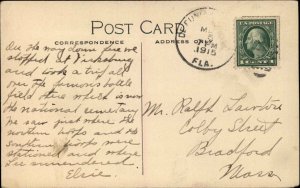 POST CARD
CORRESPONDENCE
ADDRESS
DE FUN
M
PM
1915
FLA.
1 CENT 1
On the way down here we
stopped at Vicksburg
and took a trip all
over the famous battle
field there which is now
the national cemetery
we saw just where the
northern troops and the
southern troops were
stationed and where
Lee surrendered.
Elsie.
Mr. Ralph
Colby Street
Bradford
Mass